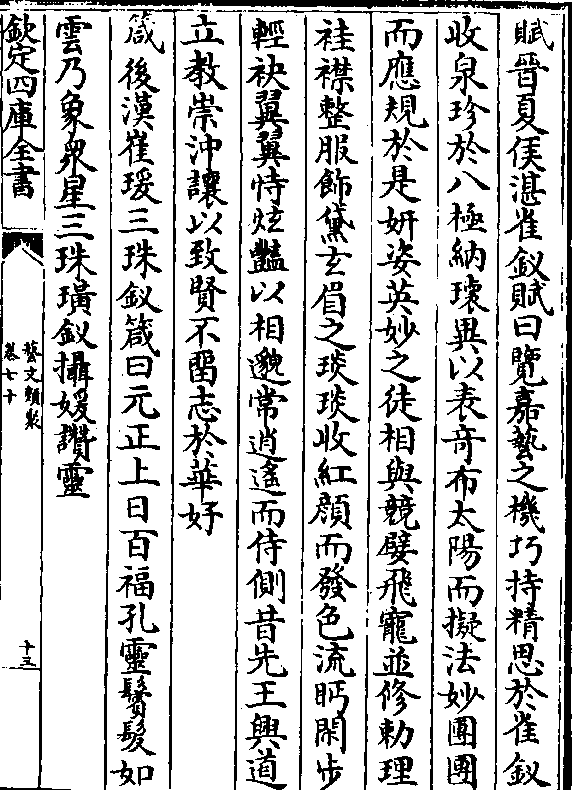 賦晉夏侯湛雀釵賦曰覽嘉藝之機巧持精思於雀釵
收泉珍於八極納瓌異以表奇布太陽而擬法妙團團
而應規於是妍姿英妙之徒相與競嬖飛寵並修勅理
袿襟整服飾黛玄眉之琰琰收紅顔而發色流眄閑步
輕袂翼翼恃炫豔以相邈常逍遙而侍側昔先王興道
立教崇沖讓以致賢不畱志於華好
箴後漢崔瑗三珠釵箴曰元正上日百福孔靈鬢髮如
雲乃象衆星三珠璜釵攝媛讚靈
欽定四庫全書
藝文類聚
卷七十
十三